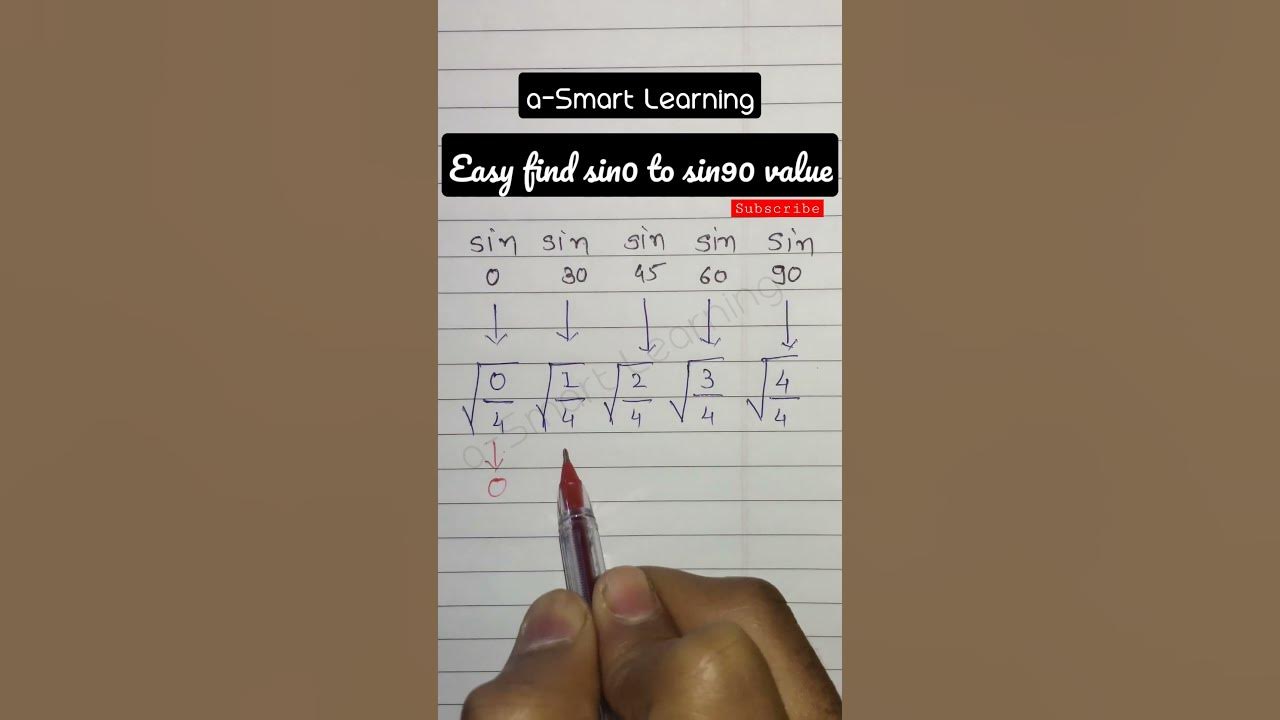 a-Smart Learning
Easy find sin0 to sin90 value
Subscribe
sin sin sin sin sin
0 30 45 60 90
↓ ↓ ↓ ↓ ↓
√0/4 √1/4 √2/4 √3/4 √4/4
a-Smart Learning
↓
0